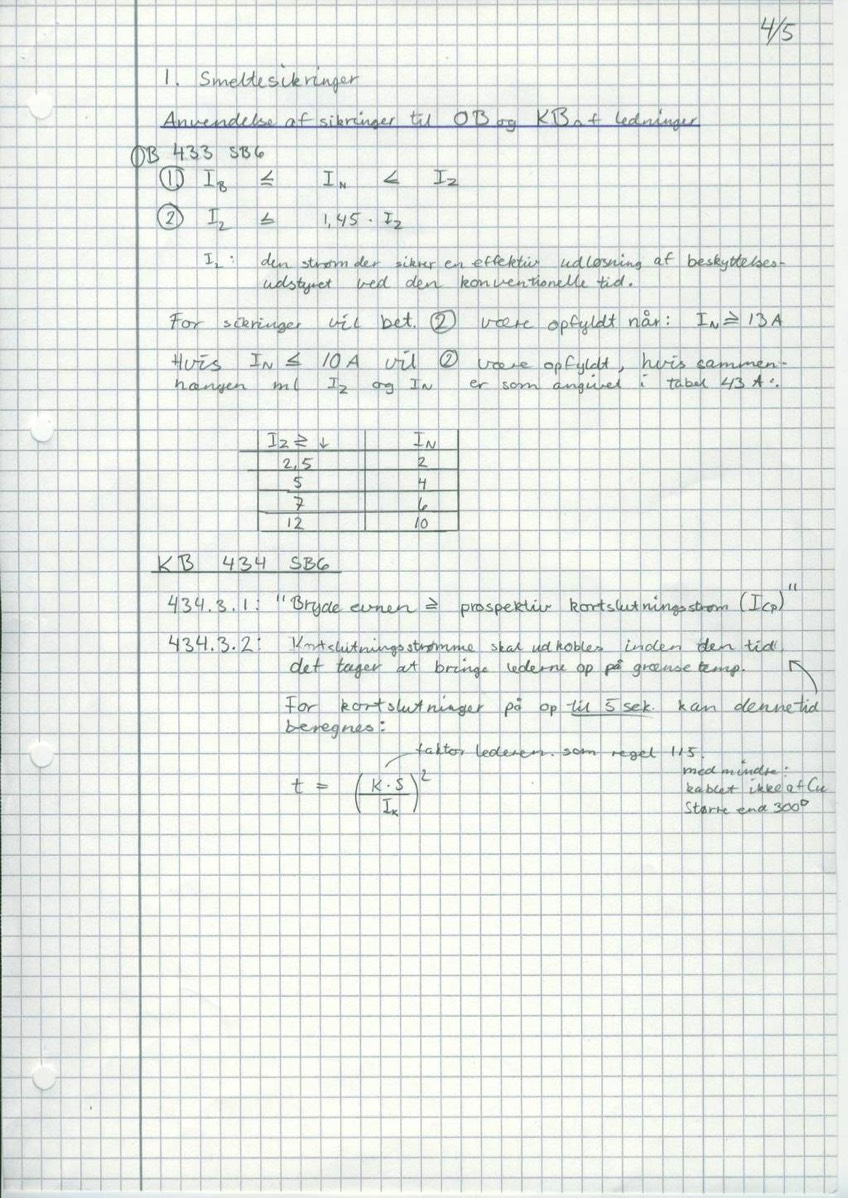 4/5
1. Smeltesikringer
Anvendelse af sikringer til OB og KB af ledninger
OB 433 SB6
① I_B ≤ I_N < I_Z
② I_2 ≤ 1,45 · I_Z
I_2: den strøm der sikrer en effektiv udløsning af beskyttelses-
udstyret ved den konventionelle tid.
For sikringer vil bet. ② være opfyldt når: I_N ≥ 13 A
Hvis I_N ≤ 10 A vil ② være opfyldt, hvis sammen-
hængen ml I_Z og I_N er som angivet i tabel 43 A:
I_Z ≥ ↓ I_N
2,5 2
5 4
7 6
12 10
KB 434 SB6
434.3.1: "Bryde evnen ≥ prospektiv kortslutningsstrøm (I_CP)"
434.3.2: Kortslutningsstrømme skal udkobles inden den tid
det tager at bringe lederne op på grænse temp.
For kortslutninger på op til 5 sek. kan denne tid
beregnes:
faktor lederen. som regel 115.
med mindre:
kablet ikke af Cu
Større end 300°
t = (K · S / I_K)²